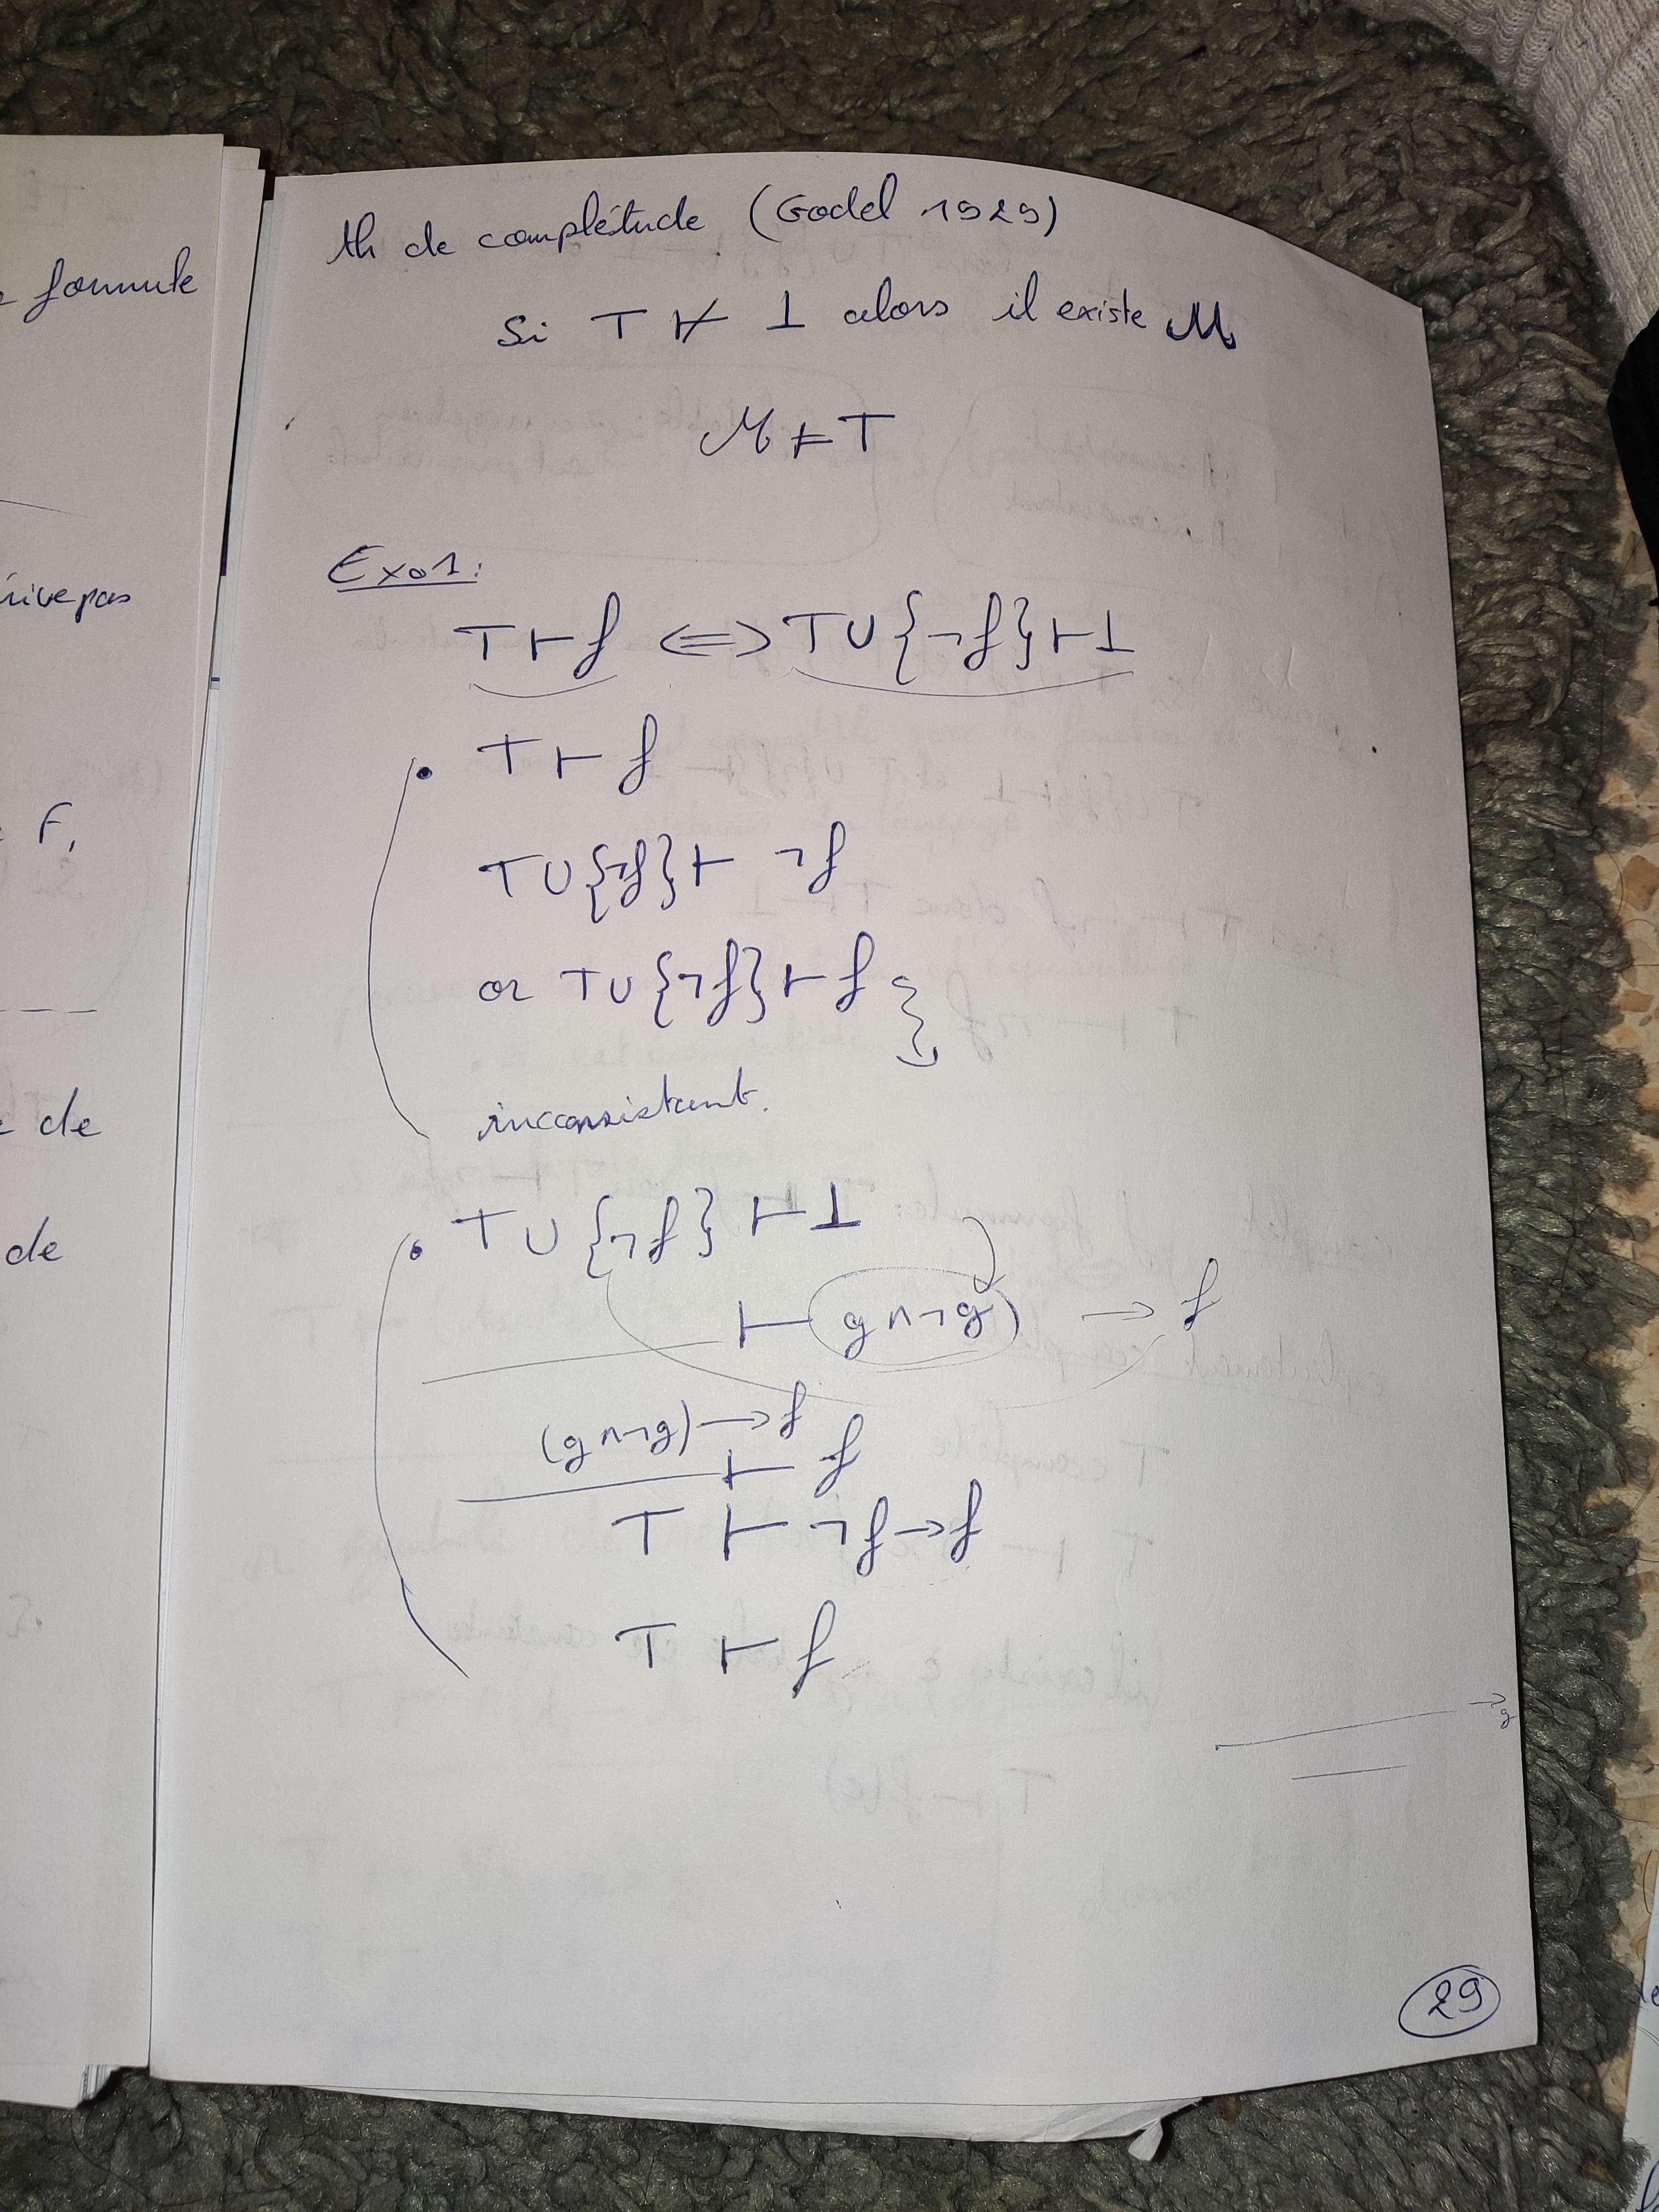 formule
rive pas
F,
de
de
th de complétude (Godel 1929)
Si T ⊬ ⊥ alors il existe M
M ⊨ T
Exo1:
T ⊢ f ⟺ T ∪ {¬f} ⊢ ⊥
• T ⊢ f
T ∪ {¬f} ⊢ ¬f
or T ∪ {¬f} ⊢ f
inconsistant.
• T ∪ {¬f} ⊢ ⊥
⊢ (g ∧ ¬g) → f
(g ∧ ¬g) → f
⊢ f
T ⊢ ¬f → f
T ⊢ f
→ g
29